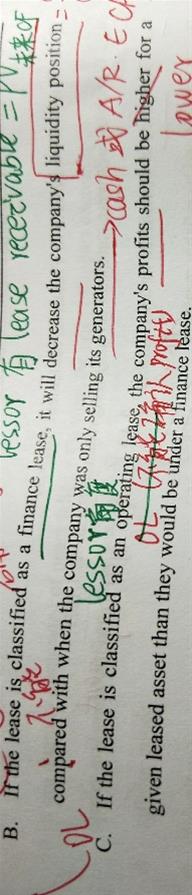 lessor 有 lease receivable = PV 未来CF
B. If the lease is classified as a finance lease, it will decrease the company's liquidity position =
compared with when the company was only selling its generators. → cash 或 A/R. E CA
OL
lessor角度
C. If the lease is classified as an operating lease, the company's profits should be higher for a
lower
OL 不能确认 profit
given leased asset than they would be under a finance lease.